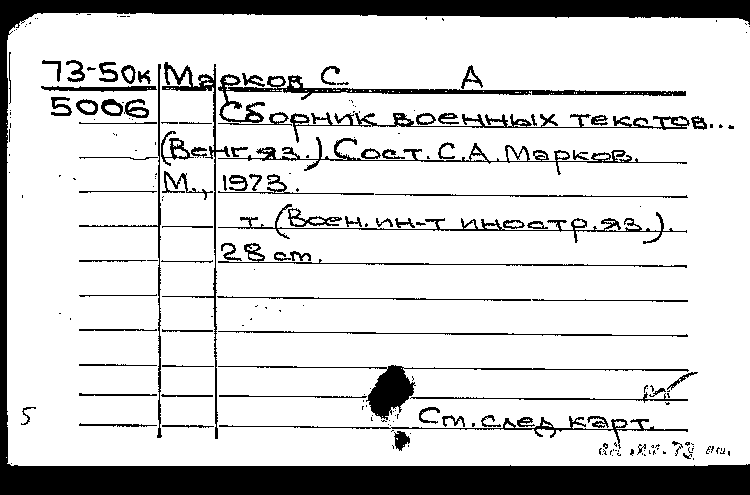 73-50к Марков, С А
5006 Сборник военных текстов...
(Венг. яз.). Сост. С.А. Марков.
М., 1973.
т. (Воен. ин-т иностр. яз.).
28 cm.
См. след. карт.
5